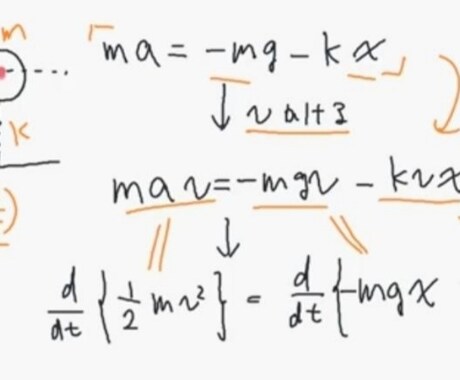 m
「ma = -mg - kx」
k
↓ vかける
mav = -mgv - kvx
↓
d/dt {1/2 mv²} = d/dt {-mgx